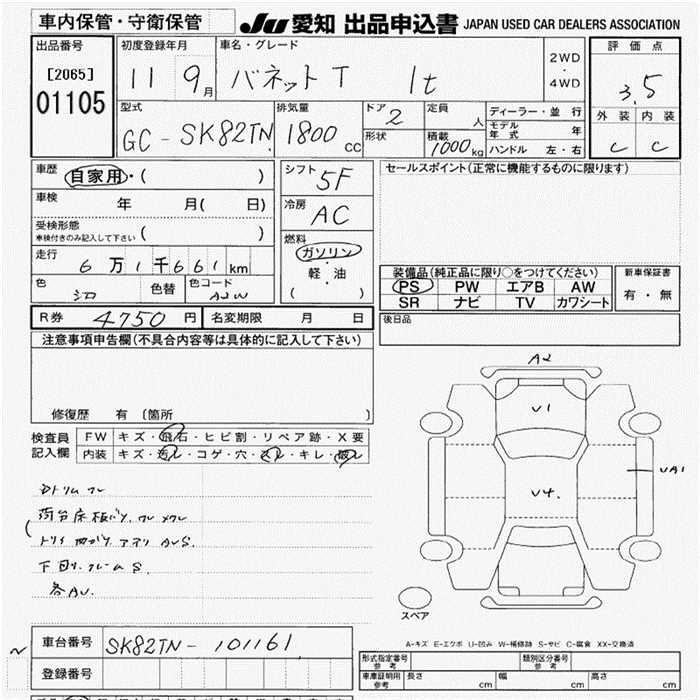 車内保管・守衛保管
JU 愛知 出品申込書 JAPAN USED CAR DEALERS ASSOCIATION
出品番号
[2065]
01105
初度登録年月
11 9月
車名・グレード
バネットT 1t
2WD
・
4WD
評価点
3.5
外装 内装
C C
型式
GC-SK82TN
排気量
1800 CC
ドア
2
形状
定員
人
積載
1000kg
ディーラー・並行
モデル年式 年
ハンドル 左・右
車歴
自家用・( )
車検
年 月( 日)
受検形態
車検付きのみ記入して下さい ( )
走行
6万1千661km
色
色替
色コード
シフト
5F
冷房
AC
燃料
ガソリン
・
軽・油
( )
セールスポイント(正常に機能するものに限ります)
装備品(純正品に限り○をつけてください)
PS PW エアB AW
SR ナビ TV カワシート
新車保証書
有・無
R券 4750円
名変期限 月 日
後日品
注意事項申告欄(不具合内容等は具体的に記入して下さい)
修復歴 有 〔箇所
検査員
記入欄
FW キズ・飛石・ヒビ割・リペア跡・X要
内装 キズ・汚レ・コゲ・穴・スレ・キレ・破レ
A2
U1
U4.
UA1
スペア
A-キズ E-エクボ U-凹み W-補修跡 S-サビ C-腐食 XX-交換済
車台番号 SK82TN-101161
登録番号
形式指定番号
参考
類別区分番号
参考
車庫証明用
参考
長さ cm 幅 cm 高さ cm